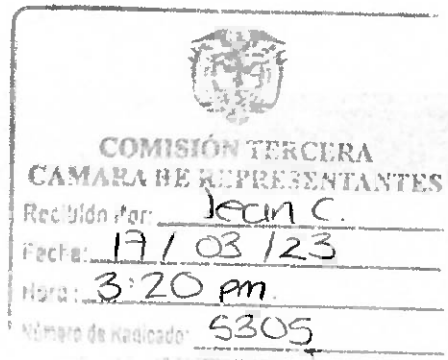 COMISIÓN TERCERA
CAMARA DE REPRESENTANTES
Recibido por: Jean C.
Fecha: 17 / 03 / 23
Hora: 3:20 pm
Número de Radicado: 5305